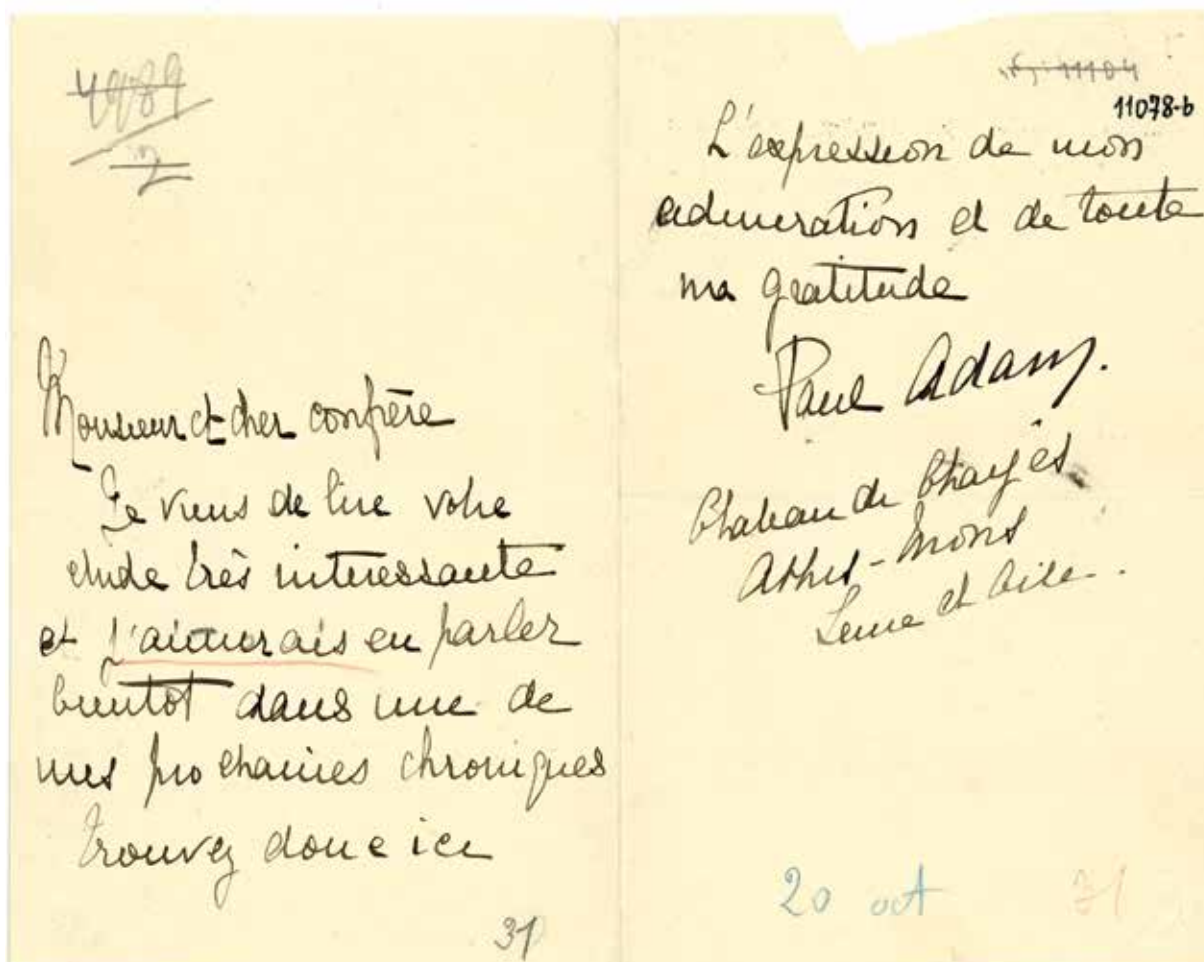 4989
2
Monsieur et cher confrère
Je viens de lire votre
étude très interessante
et j'aimerais en parler
bientôt dans une de
mes prochaines chroniques
Trouvez donc ici
31
11104
11078-b
L'expression de mon
admiration et de toute
ma gratitude
Paul Adam.
Chateau de
Athis-Mons
Seine et Oise.
20 oct
31